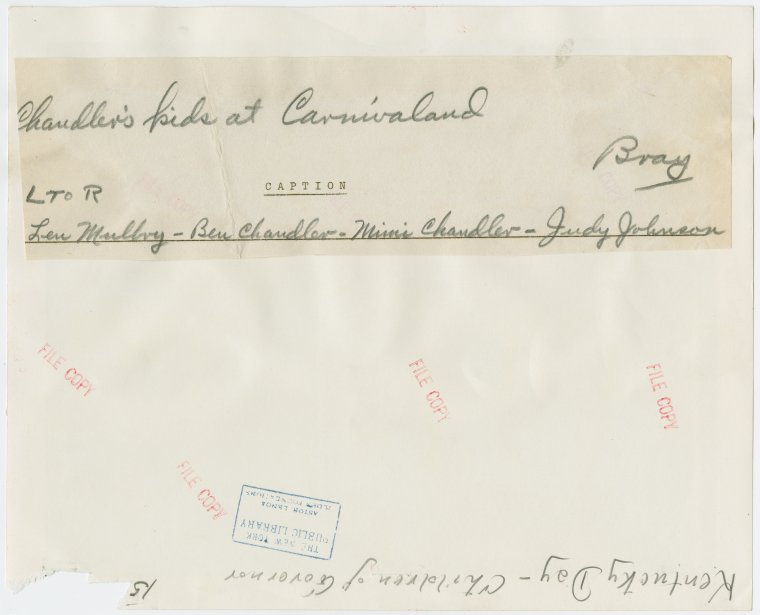 Chandler's kids at Carnivaland
Bray
L TO R
CAPTION
Len Mullvy - Ben Chandler - Mimi Chandler - Judy Johnson
FILE COPY
FILE COPY
FILE COPY
FILE COPY
THE NEW YORK
PUBLIC LIBRARY
ASTOR LENOX
TILDEN FOUNDATIONS
Kentucky Day - Children of Governor
15